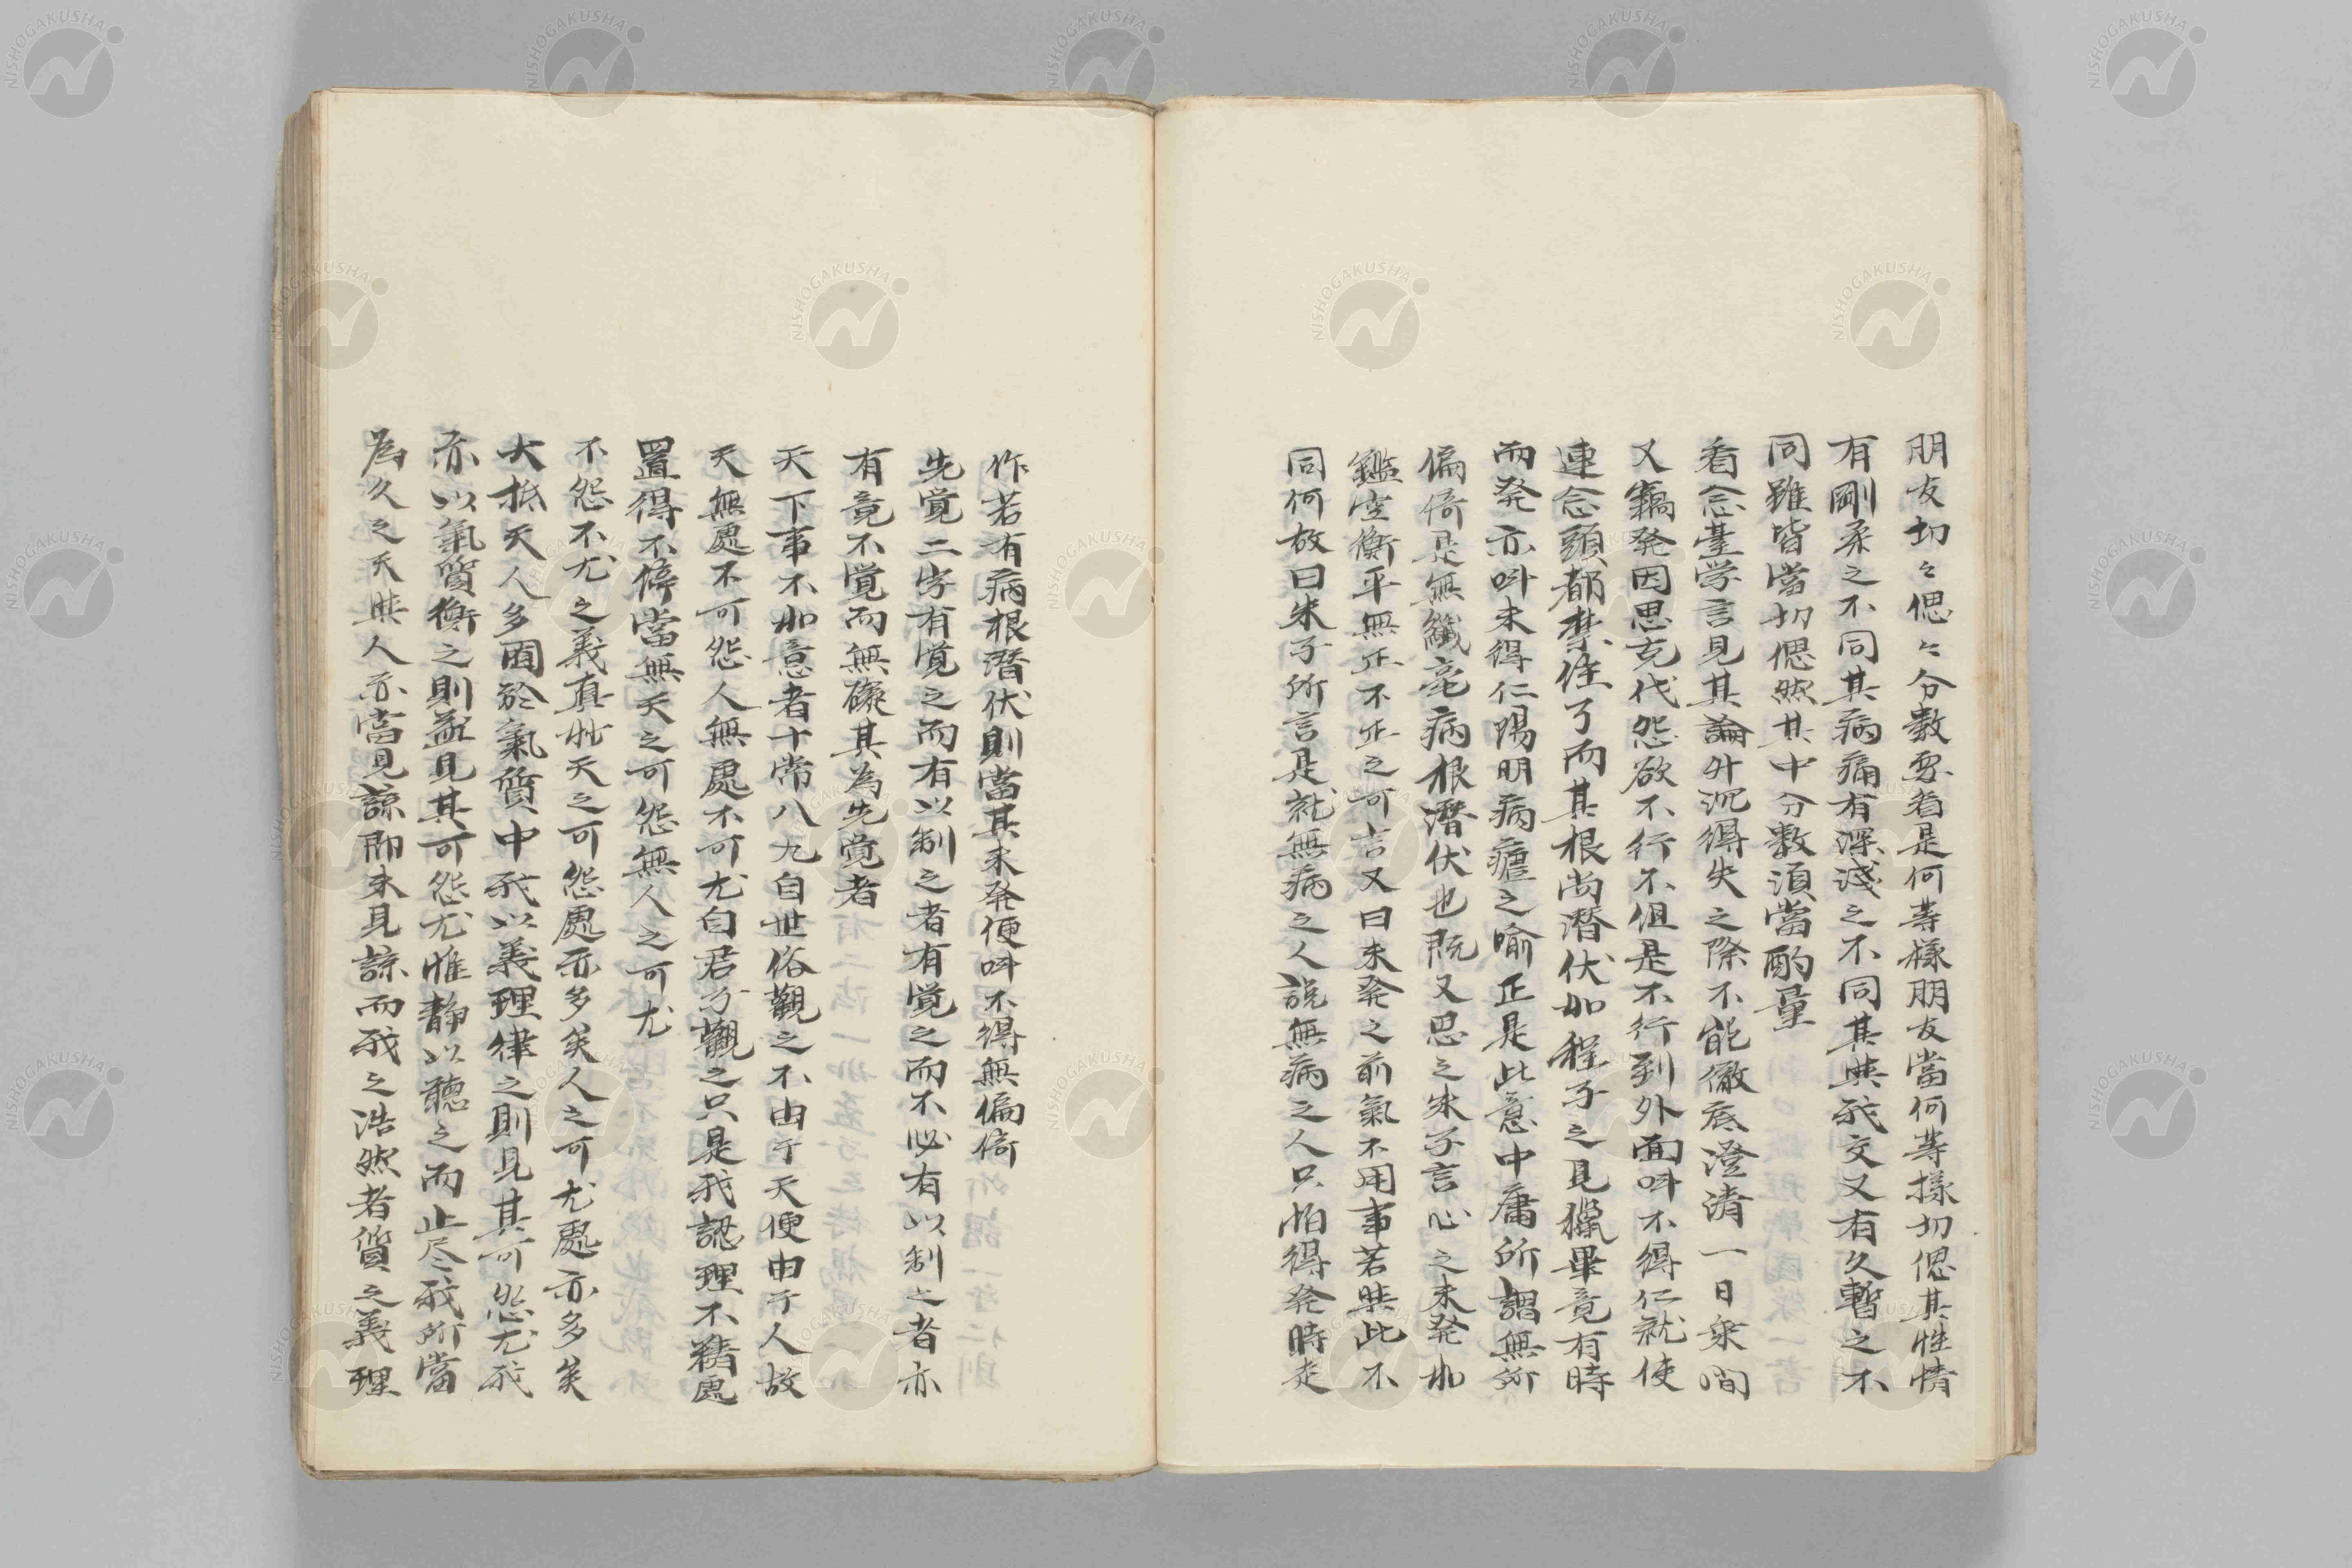 朋友切々偲々分数要看是何等樣朋友當何等樣切偲其性情
有剛柔之不同其病痛有深淺之不同其與我交又有久暫之不
同雖皆當切偲然其中分数須當酌量
看念臺学言見其論升沉得失之際不能徹底澄清一日衆間
又竊発因思克伐怨欲不行不但是不行到外面叫不得仁就使
連念頭都禁住了而其根尚潜伏如程子之見獵畢竟有時
而発亦叫未得仁陽明病瘧之喻正是此意中庸所謂無所
偏倚是無纖毫病根潜伏也既又思之朱子言心之未発如
鑑空衡平無正不正之可言又曰未発之前氣不用事若與此不
同何故曰朱子所言是就無病之人説無病之人只怕得発時走
作若有病根潛伏則當其未発便叫不得無偏倚
先覚二字有覚之而有以制之者有覚之而不必有以制之者亦
有竟不覚而無礙其為先覚者
天下事不如意者十常八九自世俗觀之不由于天便由于人故
天無處不可怨人無處不可尤自君子觀之只是我認理不精處
置得不停當無天之可怨無人之可尤
不怨不尤之義真妙天之可怨處亦多矣人之可尤處亦多矣
大抵天人多囿於氣質中我以義理律之則見其可怨尤我
亦以氣質衡之則益見其可怨尤惟靜以聽之而止尽我所當
為久之天與人亦當見諒即未見諒而我之浩然者質之義理